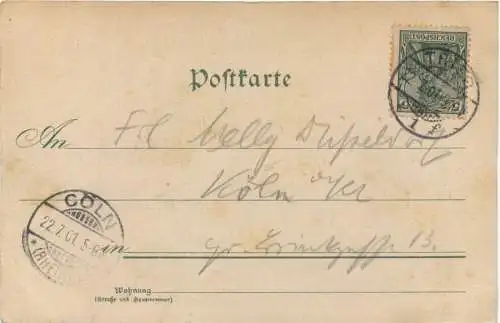 REICHSPOST
Postkarte
An Frl. Nelly Düsseldorf
Köln a/Rh
CÖLN
22.7.01. 5-6
* (RHEIN)
in gr. Brinkgasse 13.
Wohnung
(Straße und Hausnummer)